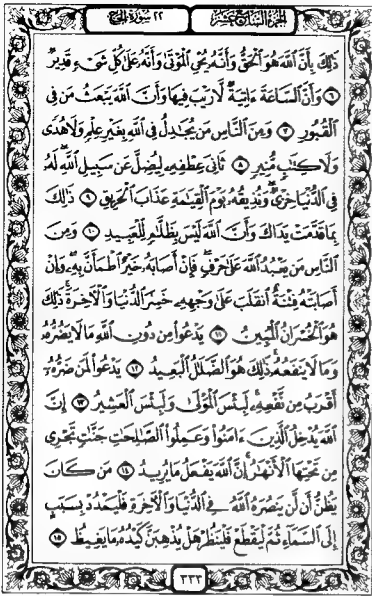 الجزء السابع عشر
٢٢ سورة الحج
ذَٰلِكَ بِأَنَّ ٱللَّهَ هُوَ ٱلْحَقُّ وَأَنَّهُۥ يُحْىِ ٱلْمَوْتَىٰ وَأَنَّهُۥ عَلَىٰ كُلِّ شَىْءٍ قَدِيرٌ
٦ وَأَنَّ ٱلسَّاعَةَ ءَاتِيَةٌ لَّا رَيْبَ فِيهَا وَأَنَّ ٱللَّهَ يَبْعَثُ مَن فِى
ٱلْقُبُورِ ٧ وَمِنَ ٱلنَّاسِ مَن يُجَٰدِلُ فِى ٱللَّهِ بِغَيْرِ عِلْمٍ وَلَا هُدًى
وَلَا كِتَٰبٍ مُّنِيرٍ ٨ ثَانِىَ عِطْفِهِۦ لِيُضِلَّ عَن سَبِيلِ ٱللَّهِ لَهُۥ
فِى ٱلدُّنْيَا خِزْىٌ وَنُذِيقُهُۥ يَوْمَ ٱلْقِيَٰمَةِ عَذَابَ ٱلْحَرِيقِ ٩ ذَٰلِكَ
بِمَا قَدَّمَتْ يَدَاكَ وَأَنَّ ٱللَّهَ لَيْسَ بِظَلَّٰمٍ لِّلْعَبِيدِ ١٠ وَمِنَ
ٱلنَّاسِ مَن يَعْبُدُ ٱللَّهَ عَلَىٰ حَرْفٍ فَإِنْ أَصَابَهُۥ خَيْرٌ ٱطْمَأَنَّ بِهِۦ وَإِنْ
أَصَابَتْهُ فِتْنَةٌ ٱنقَلَبَ عَلَىٰ وَجْهِهِۦ خَسِرَ ٱلدُّنْيَا وَٱلْأَخِرَةَ ذَٰلِكَ
هُوَ ٱلْخُسْرَانُ ٱلْمُبِينُ ١١ يَدْعُوا۟ مِن دُونِ ٱللَّهِ مَا لَا يَضُرُّهُۥ
وَمَا لَا يَنفَعُهُۥ ذَٰلِكَ هُوَ ٱلضَّلَٰلُ ٱلْبَعِيدُ ١٢ يَدْعُوا۟ لَمَن ضَرُّهُۥٓ
أَقْرَبُ مِن نَّفْعِهِۦ لَبِئْسَ ٱلْمَوْلَىٰ وَلَبِئْسَ ٱلْعَشِيرُ ١٣ إِنَّ
ٱللَّهَ يُدْخِلُ ٱلَّذِينَ ءَامَنُوا۟ وَعَمِلُوا۟ ٱلصَّٰلِحَٰتِ جَنَّٰتٍ تَجْرِى
مِن تَحْتِهَا ٱلْأَنْهَٰرُ إِنَّ ٱللَّهَ يَفْعَلُ مَا يُرِيدُ ١٤ مَن كَانَ
يَظُنُّ أَن لَّن يَنصُرَهُ ٱللَّهُ فِى ٱلدُّنْيَا وَٱلْأَخِرَةِ فَلْيَمْدُدْ بِسَبَبٍ
إِلَى ٱلسَّمَآءِ ثُمَّ لْيَقْطَعْ فَلْيَنظُرْ هَلْ يُذْهِبَنَّ كَيْدُهُۥ مَا يَغِيظُ ١٥
٣٣٣